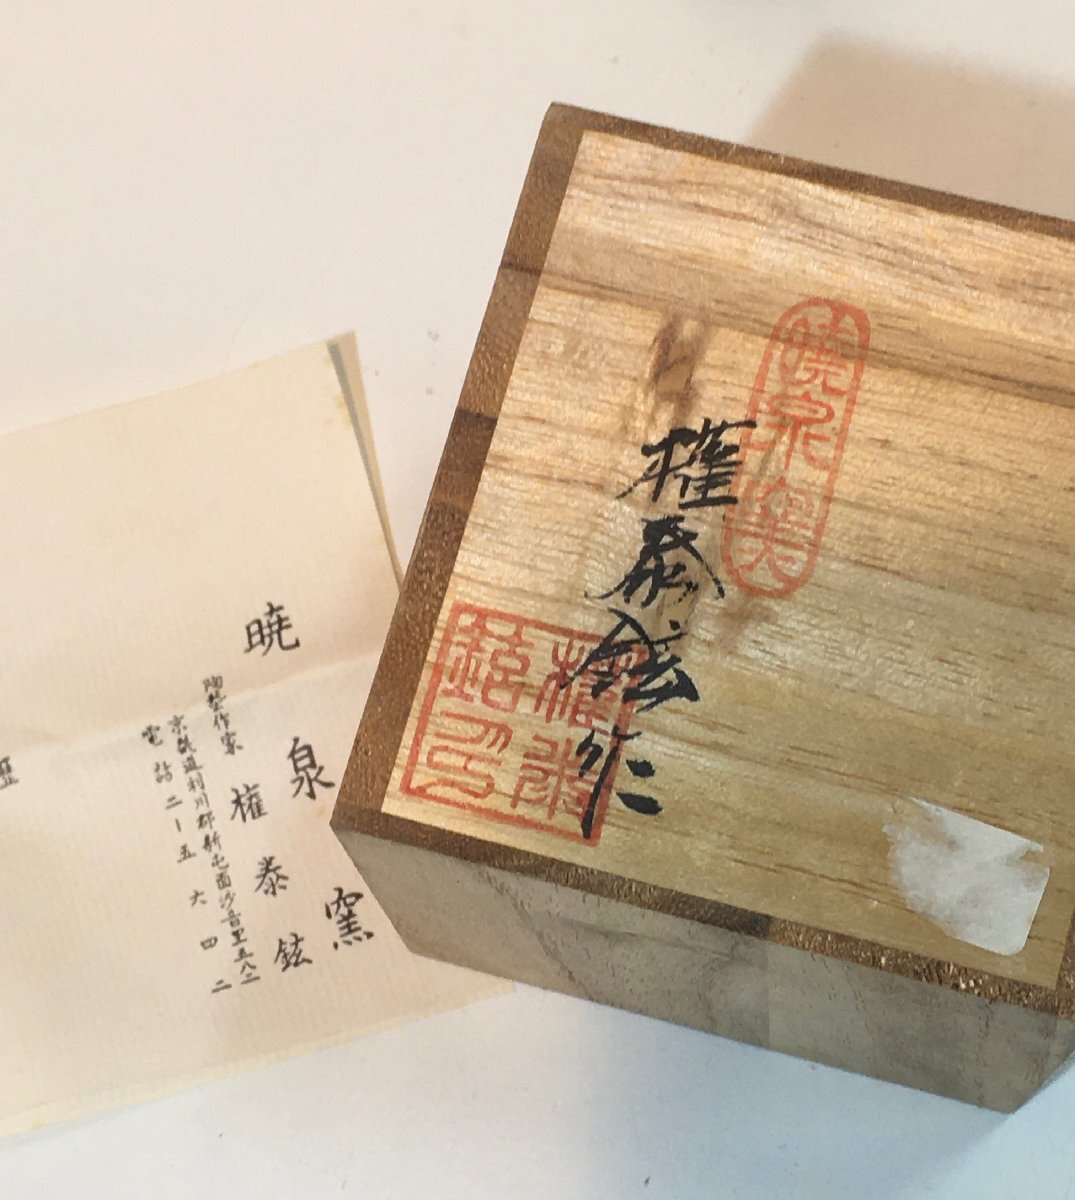 暁泉窯
陶芸作家 権泰鉉
京畿道利川郡新屯面沙音里五八二
電話二ー五六四二
歴
暁泉窯
權泰鉉作
權泰鉉印